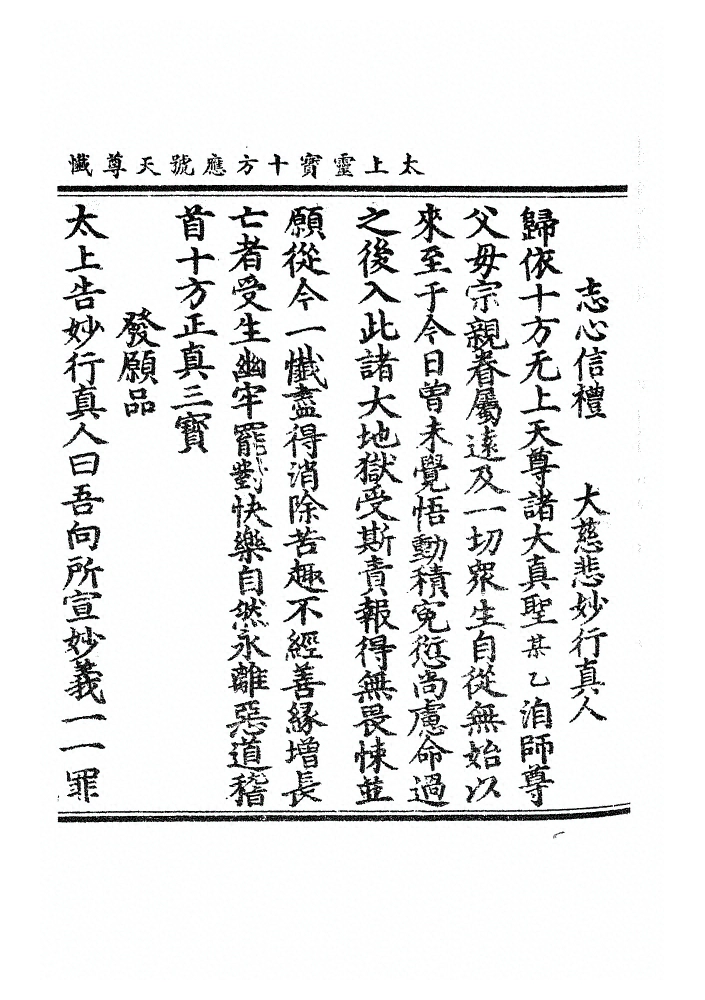 太上靈寶十方應號天尊懺
志心信禮　大慈悲妙行真人
歸依十方无上天尊諸大真聖某乙洎師尊
父母宗親眷屬遠及一切衆生自從無始以
來至于今日曾未覺悟動積寃愆尚慮命過
之後入此諸大地獄受斯責報得無畏悚並
願從今一懺盡得消除苦趣不經善緣增長
亡者受生幽牢罷對快樂自然永離惡道稽
首十方正真三寶
發願品
太上告妙行真人曰吾向所宣妙義一一罪